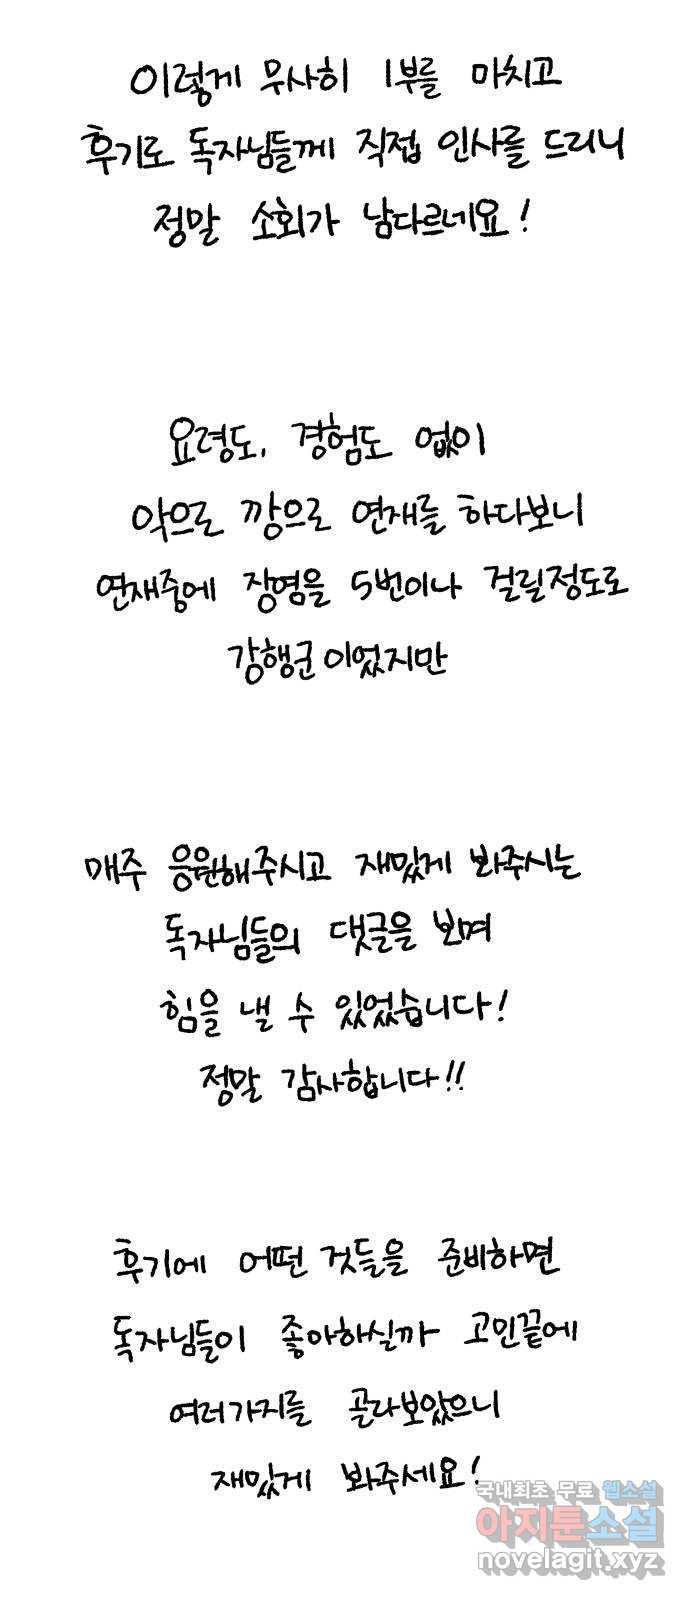 이렇게 무사히 1부를 마치고
후기로 독자님들께 직접 인사를 드리니
정말 소회가 남다르네요!
요령도, 경험도 없이
악으로 깡으로 연재를 하다보니
연재중에 장염을 5번이나 걸릴정도로
강행군이었지만
매주 응원해주시고 재밌게 봐주시는
독자님들의 댓글을 보며
힘을 낼 수 있었습니다!
정말 감사합니다!!
후기에 어떤 것들을 준비하면
독자님들이 좋아하실까 고민끝에
여러가지를 골라보았으니
재밌게 봐주세요!
국내최초 무료 웹소설
아지툰소설
novelagit.xyz